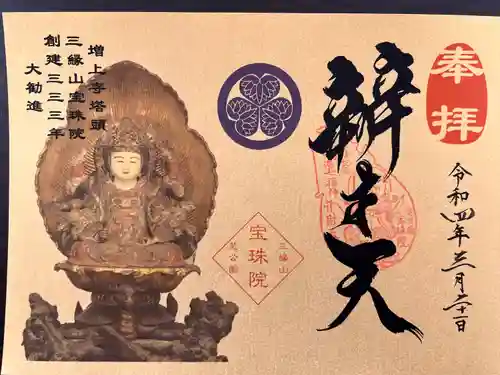 増上寺塔頭
三縁山宝珠院
創建三三三年
大勧進
奉拝
辨才天
令和四年三月二十一日
三縁山
宝珠院
芝公園